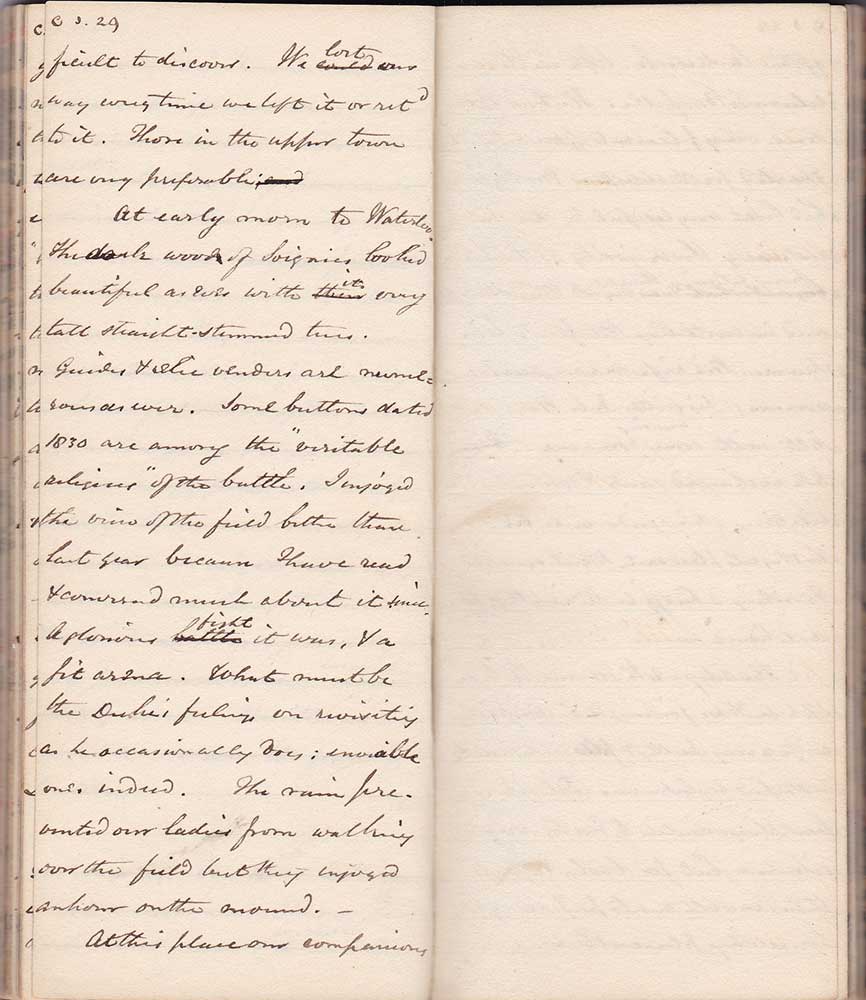 C 3. 29
ficult to discover. We lost could our
way every time we left it or retd
to it. Those in the upper town
are very preferable, and
At early morn to Waterloo.
The dark wood of Soignies looked
beautiful as ever with its their very
tall straight-stemmed trees.
Guides & relic venders are nume=
rous as ever. Some buttons dated
1830 are among the "veritable
religues" of the battle. I enjoyed
the view of the field better than
last year because I have read
& conversed much about it since.
A glorious fight battle it was, & a
fit arena. What must be
the Duke's feelings on revisiting
as he occasionally does; enviable
ones indeed. The rain pre-
vented our ladies from walking
over the field but they enjoyed
an hour on the mound. —
At this place our companions